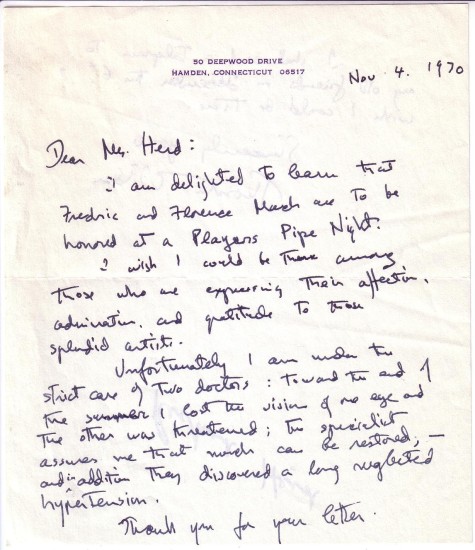 50 DEEPWOOD DRIVE
HAMDEN, CONNECTICUT 06517
Nov 4. 1970
Dear Mr. Herd:
I am delighted to learn that
Fredric and Florence March are to be
honored at a Players Pipe Night.
I wish I could be there among
those who are expressing their affection,
admiration, and gratitude to those
splendid artists.
Unfortunately I am under the
strict care of two doctors: toward the end of
the summer I lost the vision of one eye and
the other was threatened; the specialist
assures me that much can be restored; —
and in addition they discovered a long neglected
hypertension.
Thank you for your letter.